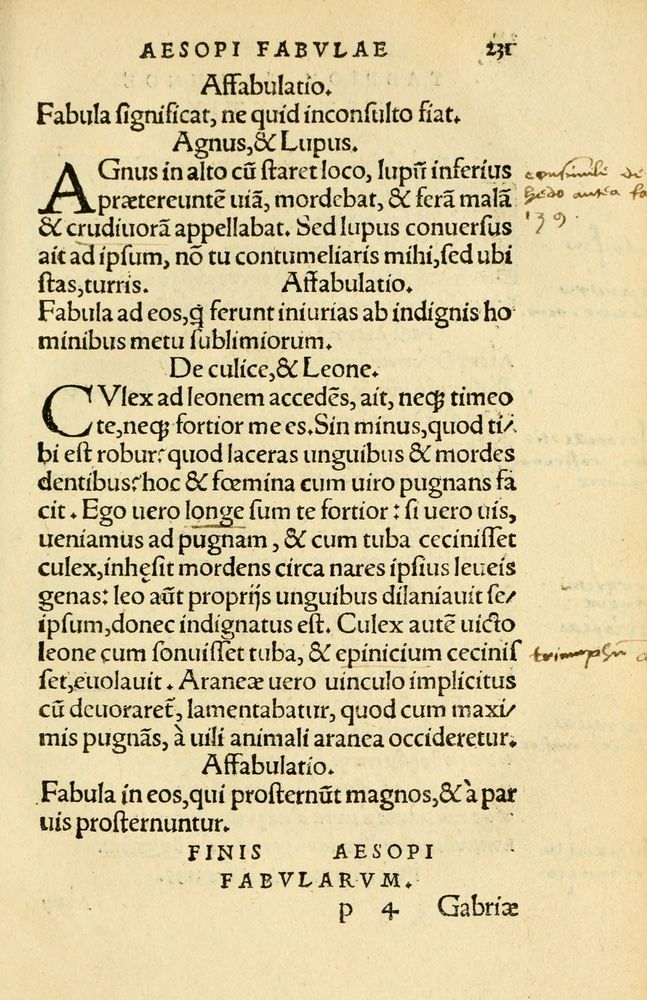 AESOPI FABVLAE 231
Affabulatio.
Fabula significat, ne quid inconsulto fiat.
Agnus, & Lupus.
AGnus in alto cũ staret loco, lupũ inferius
prætereuntẽ uiã, mordebat, & ferã malã
& crudiuorã appellabat. Sed lupus conuersus
ait ad ipsum, nõ tu contumeliaris mihi, sed ubi
stas, turris. Affabulatio.
Fabula ad eos, q̃ ferunt iniurias ab indignis ho
minibus metu sublimiorum.
De culice, & Leone.
CVlex ad leonem accedẽs, ait, neq; timeo
te, neq; fortior me es. Sin minus, quod ti-
bi est robur? quod laceras unguibus & mordes
dentibus? hoc & fœmina cum uiro pugnans fa
cit. Ego uero longe sum te fortior: si uero uis,
ueniamus ad pugnam, & cum tuba cecinisset
culex, inhęsit mordens circa nares ipsius leueis
genas: leo aũt proprijs unguibus dilaniauit se-
ipsum, donec indignatus est. Culex autẽ uicto
leone cum sonuisset tuba, & epinicium cecinis
set, euolauit. Araneæ uero uinculo implicitus
cũ deuoraret̃, lamentabatur, quod cum maxi-
mis pugnãs, à uili animali aranea occideretur.
Affabulatio.
Fabula in eos, qui prosternũt magnos, & à par
uis prosternuntur.
FINIS AESOPI
FABVLARVM.
p 4 Gabriæ
consimile de
hedo antea fa
139.